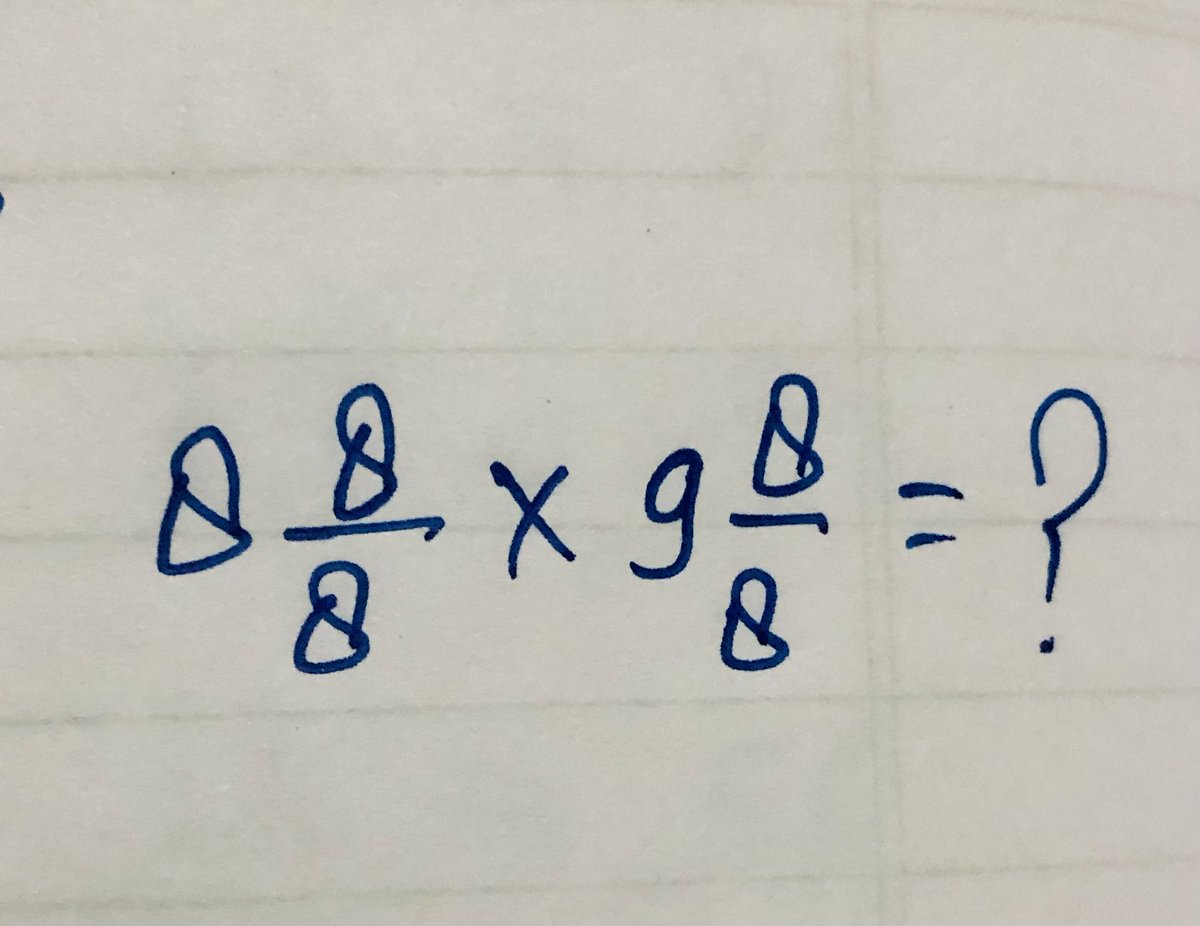 8 8/8 x 9 8/8 = ?